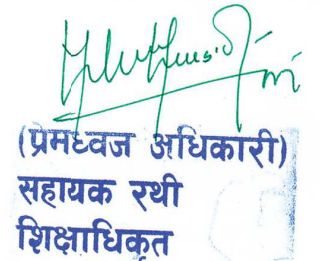 (प्रेमध्वज अधिकारी)
सहायक रथी
शिक्षाधिकृत